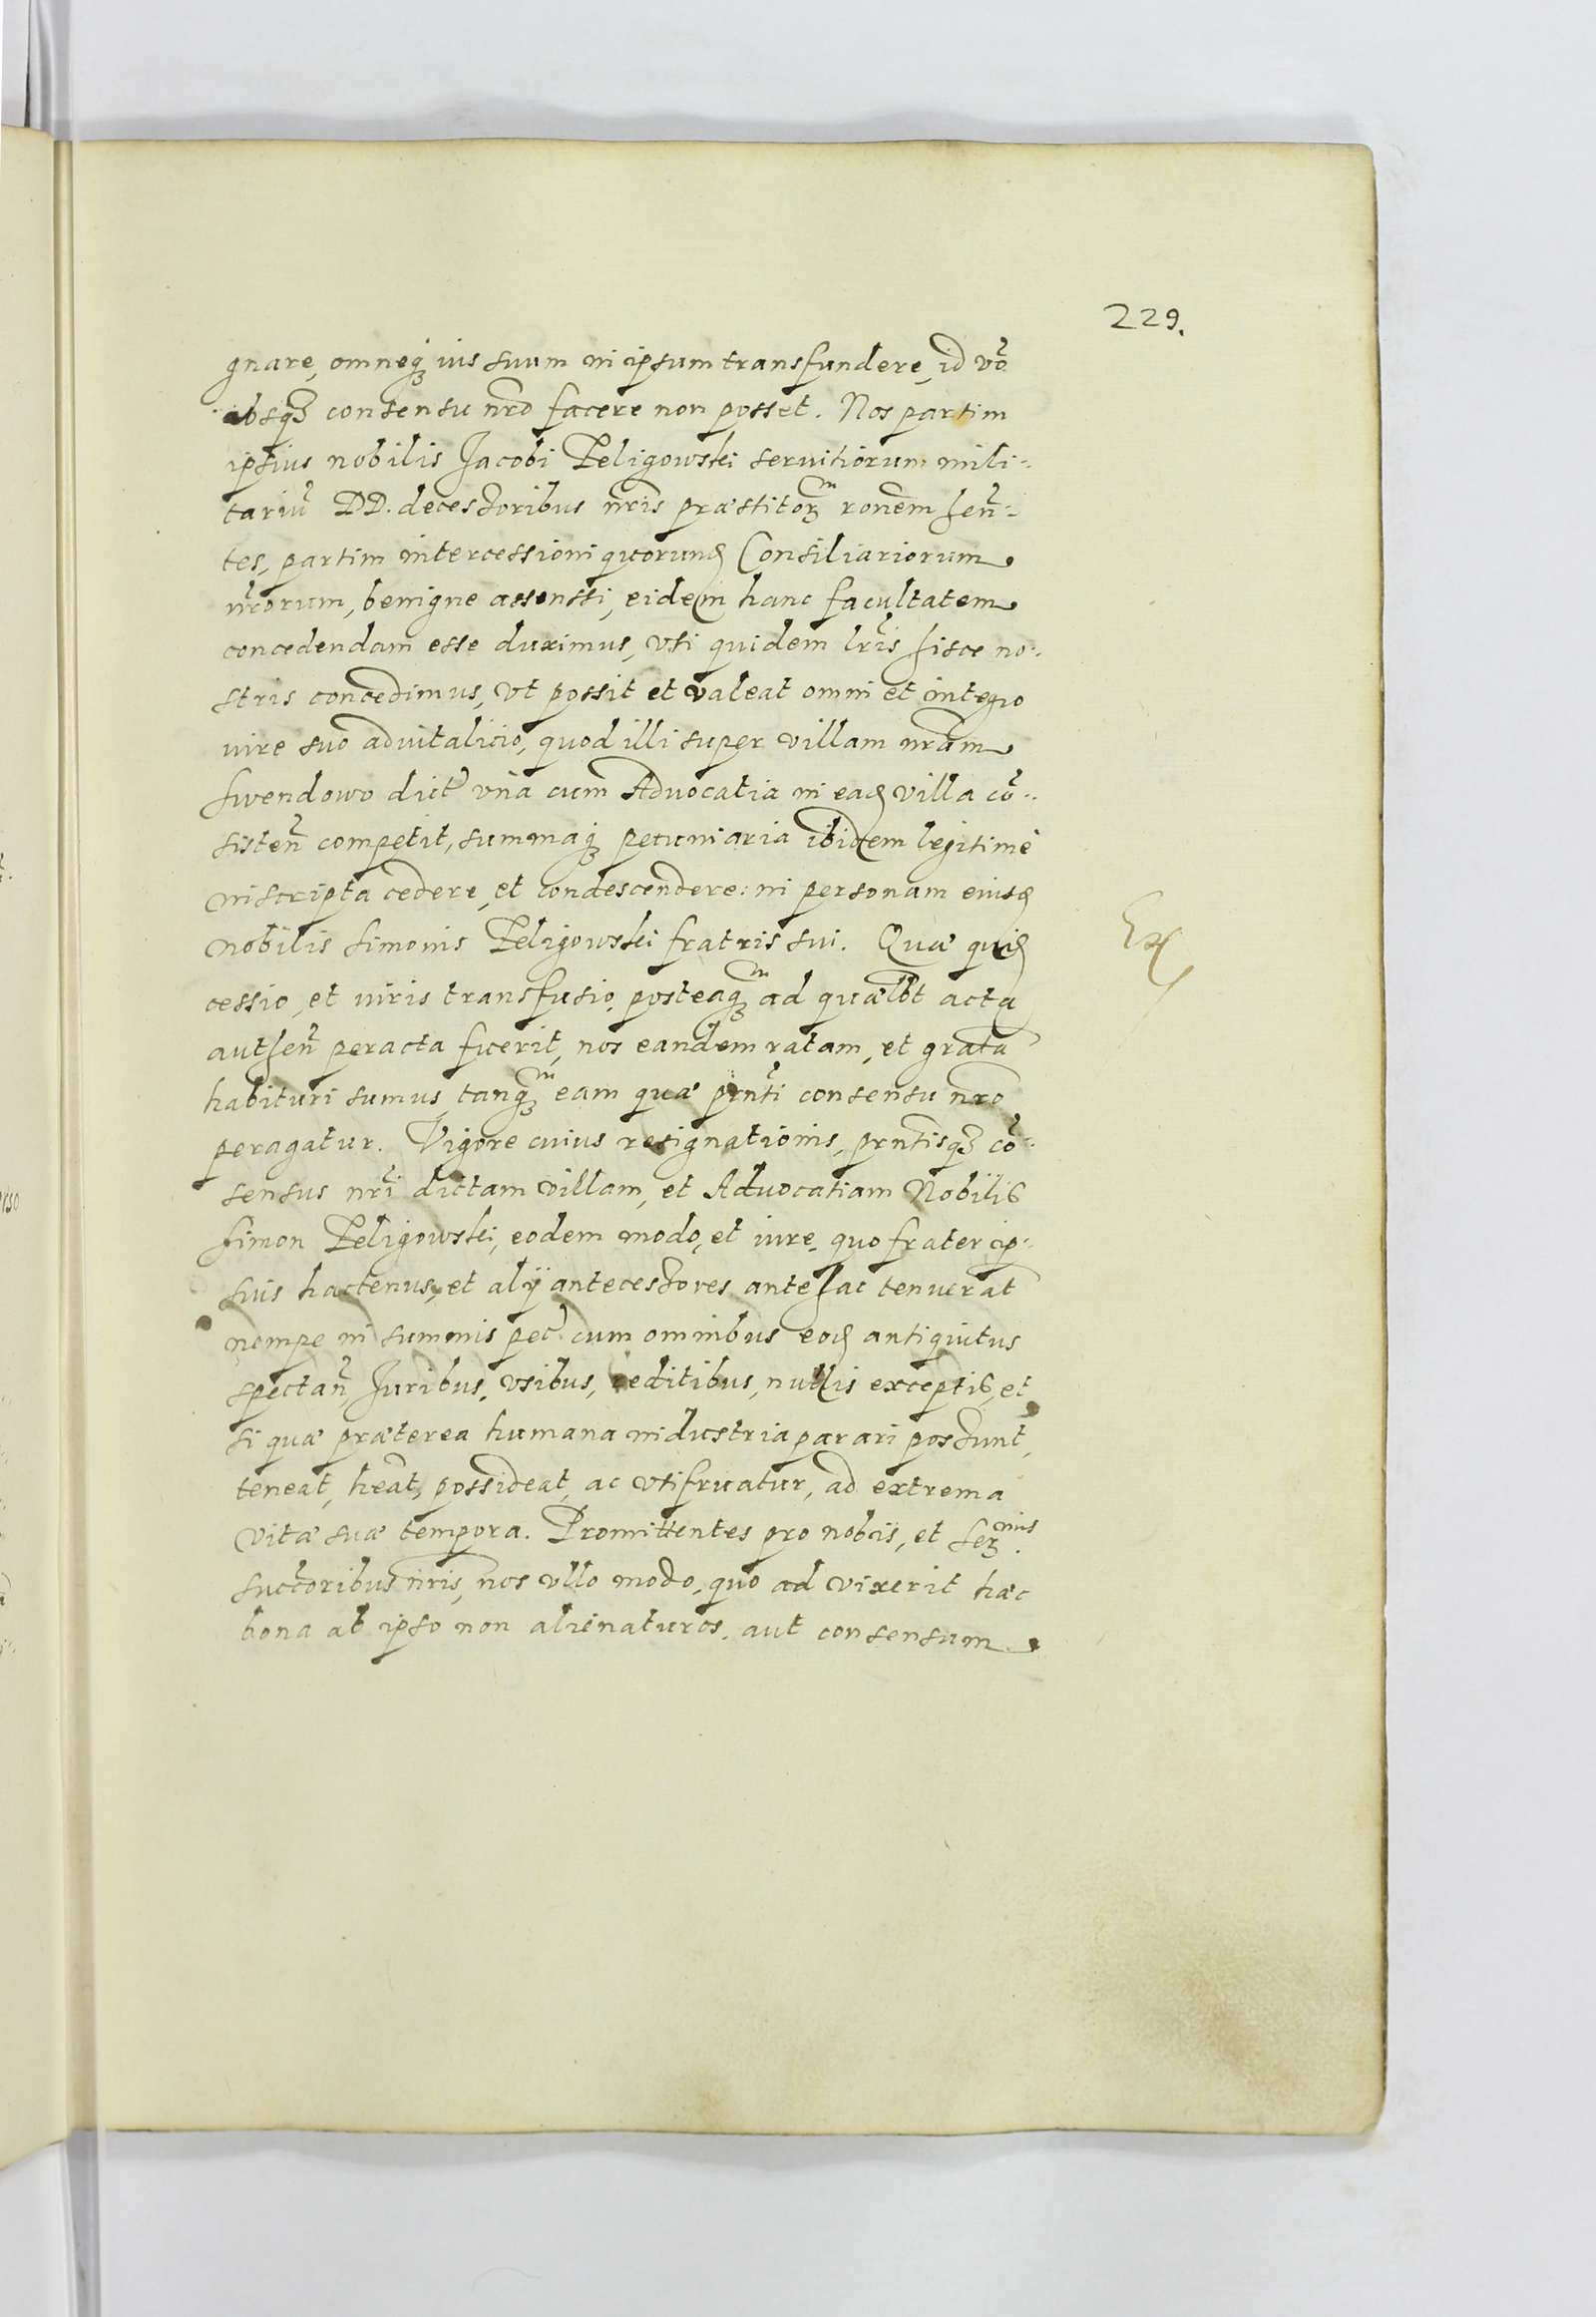 229.
gnare, omneq₃ ius suum in ipsum transfundere, id vo᷃
absq₃ consensu nr̃o facere non posset. Nos partim
ipsius nobilis Jacobi Peligowski servitiorum mili:
tariu᷃ DD. decessoribus nr̃is præstitor₃ ron̄em hen̄:
tes, partim intercessioni quorund̨ Consiliariorum
nr̃orum, benigne assenssi, eidem hanc facultatem
concedendam esse duximus, vti quidem lr̃is hisce no:
stris concedimus, vt possit et valeat omni et integro
iure suo advitalicio, quod illi super villam nr̃am
Swendowo dict' vna cum Advocatia in ead̨ villa co᷃:
sisten᷃ competit, summaq₃ pecuniaria ibidem legitimè
inscripta cedere, et condescendere: in personam eiusd̨
nobilis Simonis Peligowski fratris sui. Quæ quid̨
Ex
cessio, et iuris transfusio, posteaq₃ᵐ ad quælbt acta
authen᷃ peracta fuerit, nos eandem ratam, et grata᷃
habituri sumus, tanq₃ᵐ eam quæ prn̄ti consensu nr̃o
peragatur. Vigore cuius resignationis, prn̄tisq₃ co᷃:
sensus nr̃i dictam villam, et Advocatiam Nobilis
Simon Peligowski, eodem modo, et iure, quo frater ip:
sius hactenus, et alij antecessores antehac tenuera᷃t
nempe in summis pec' cum omnibus eod̨ antiquitus
spectan᷃, Juribus, vsibus, reditibus, nullis exceptis, et
si quæ præterea humana industria parari possunt,
teneat, hea᷃t, possideat, ac vtifruatur, ad extrema
vitæ suæ tempora. Promittentes pro nobis, et Ser₃ᵐⁱˢ
succ̄oribus nr̃is, nos vllo modo, quo ad vixerit hæc
bona ab ipso non alienaturos, aut consensum